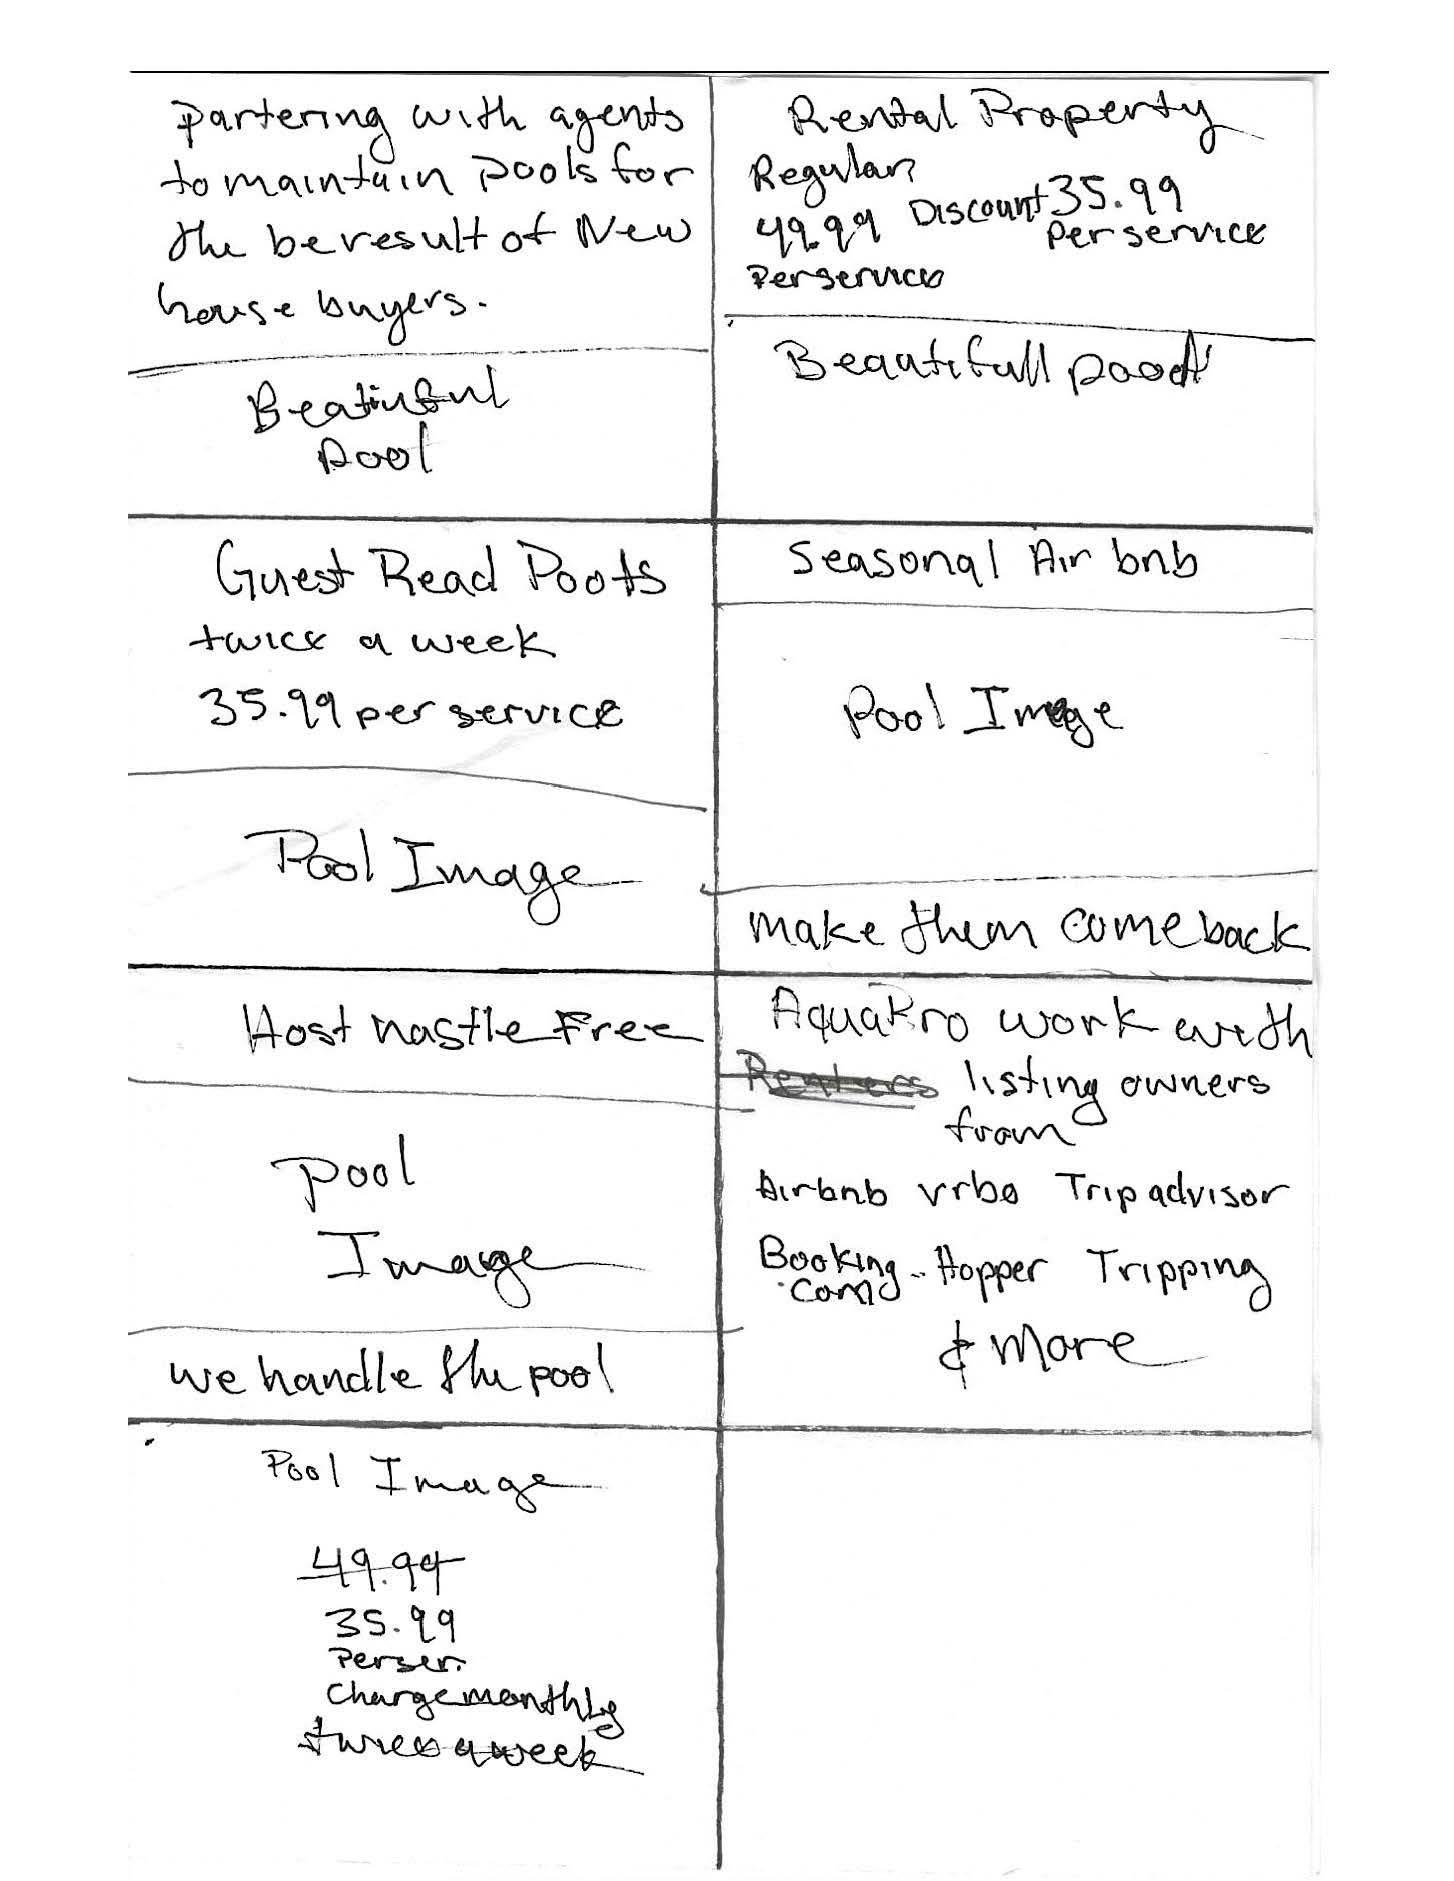 Partering with agents
to maintain pools for
the be result of New
house buyers.
Beatinful
Pool
Rental Property
Regular
49.99 Discount 35.99
Per service
Per service
Beautifull pool
Guest Read Pools
twice a week
35.99 per service
Pool Image
Seasonal Air bnb
Pool Image
make them comeback
Host hastle Free
Pool
Image
we handle the pool
AquaPro work with
Renters listing owners
from
Airbnb vrbo Tripadvisor
Booking Hopper Tripping
.com
& More
Pool Image
49.99
35.99
Per ser.
Charge monthly
twice a week